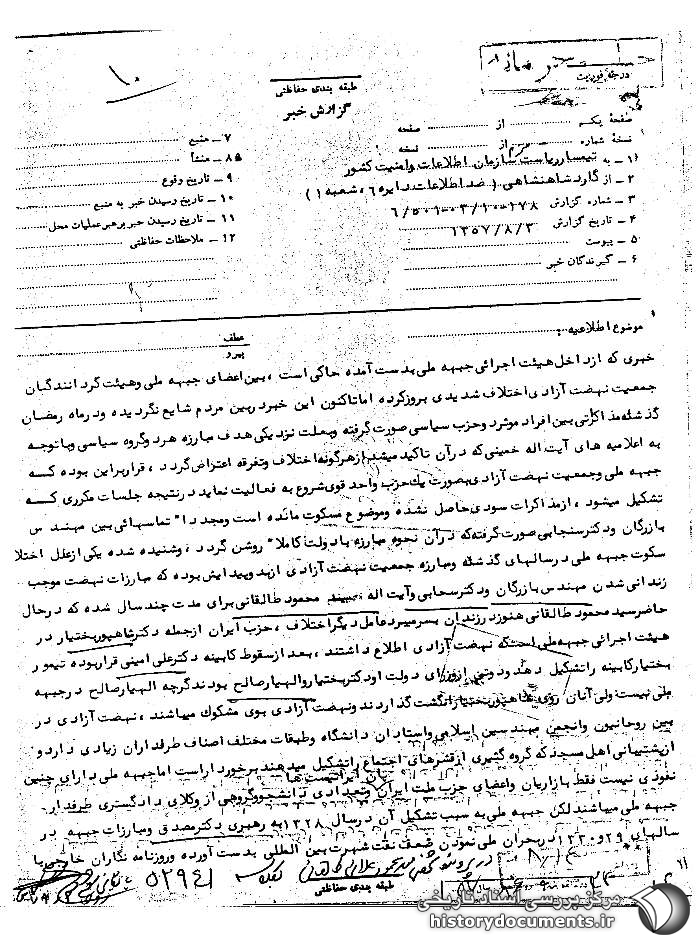 درجه فوریت
طبقه بندی حفاظتی
گزارش خبر
صفحه یکم از صفحه
نسخه شماره از نسخه
۱ـ به تیمسار ریاست سازمان اطلاعات و امنیت کشور
۲ـ از گارد شاهنشاهی (ضد اطلاعات دایره ۶، شعبه ۱)
۳ـ شماره گزارش ۶/۵۰۱-۰۳/۱۰-۱۷۸
۴ـ تاریخ گزارش ۱۳۵۷/۸/۳
۵ـ پیوست
۶ـ گیرندگان خبر
۷ـ منبع
۸ـ منشأ
۹ـ تاریخ وقوع
۱۰ـ تاریخ رسیدن خبر به منبع
۱۱ـ تاریخ رسیدن خبر به رهبر عملیات محل
۱۲ـ ملاحظات حفاظتی
موضوع اطلاعیه:
عطف
پیرو
خبری که از داخل هیئت اجرائی جبهه ملی بدست آمده حاکی است، بین اعضای جبهه ملی و هیئت گردانندگان
جمعیت نهضت آزادی اختلاف شدیدی بروز کرده اما تاکنون این خبر در بین مردم شایع نگردیده و در ماه رمضان
گذشته مذاکراتی بین افراد موثر دو حزب سیاسی صورت گرفته و بعلت نزدیکی هدف مبارزه هر دو گروه سیاسی و با توجه
به اعلامیه های آیت اله خمینی که در آن تاکید میشد از هر گونه اختلاف و تفرقه اعتراض گردد، قرار بر این بوده که
جبهه ملی و جمعیت نهضت آزادی بصورت یک حزب واحد قوی شروع به فعالیت نماید در نتیجه جلسات مکرری که
تشکیل میشود، از مذاکرات سودی حاصل نشده و موضوع مسکوت مانده است و مجددا" تماسهائی بین مهندس
بازرگان و دکتر سنجابی صورت گرفته که در آن نحوه مبارزه با دولت کاملا" روشن گردد، و شنیده شده یکی از علل اختلا
سکوت جبهه ملی در سالهای گذشته و مبارزه جمعیت نهضت آزادی از بدو پیدایش بوده که مبارزات نهضت موجب
زندانی شدن مهندس بازرگان و دکتر سحابی و آیت اله سید محمود طالقانی برای مدت چند سال شده که در حال
حاضر سید محمود طالقانی هنوز در زندان بسر میبرد عامل دیگر اختلاف، حزب ایران از جمله دکتر شاهپور بختیار در
هیئت اجرائی جبهه ملی است که نهضت آزادی اطلاع داشتند، بعد از سقوط کابینه دکتر علی امینی قرار بوده تیمور
بختیار کابینه را تشکیل دهد و دو تن از وزرای دولت او دکتر بختیار و الهیار صالح بودند گرچه الهیار صالح در جبهه
ملی نیست ولی آنان روی شاهپور بختیار انگشت گذاردند و نهضت آزادی بوی مشکوک میباشند، نهضت آزادی در
بین روحانیون و انجمن مهندسین اسلامی و استادان دانشگاه و طبقات مختلف اصناف طرفداران زیادی دارد و
از پشتیبانی اهل مسجد که گروه کثیری از قشرهای اجتماع را تشکیل میدهند برخوردار است اما جبهه ملی دارای چنین
نفوذی نیست فقط بازاریان و اعضای حزب ملت ایران و تعدادی دانشجو و گروهی از وکلای دادگستری طرفدار
جبهه ملی میباشند لکن جبهه ملی به سبب تشکیل آن در سال ۱۳۲۸ به رهبری دکتر مصدق و مبارزات جبهه در
سالهای ۲۹ و ۱۳۳۰ در بحران ملی نمودن صنعت نفت شهرت بین المللی بدست آورده و روزنامه نگاران خارجی با
طبقه بندی حفاظتی
مرکز بررسی اسناد تاریخی
historydocuments.ir